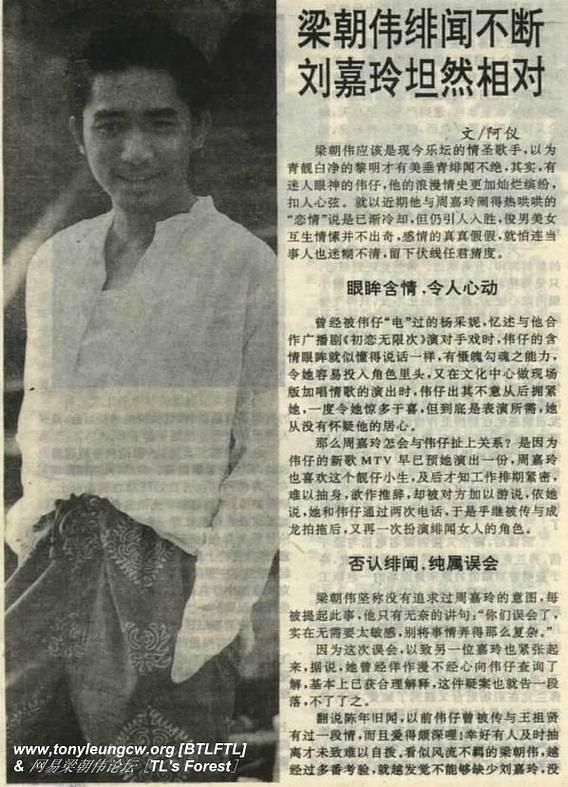 梁朝伟绯闻不断
刘嘉玲坦然相对
文/阿仪
梁朝伟应该是现今乐坛的情圣歌手,以为
青靓白净的黎明才有美垂青绯闻不绝,其实,有
迷人眼神的伟仔,他的浪漫情史更加灿烂缤纷,
扣人心弦。就以近期他与周嘉玲闹得热哄哄的
“恋情”说是已渐冷却,但仍引人入胜,俊男美女
互生情愫并不出奇,感情的真真假假,就怕连当
事人也迷糊不清,留下伏线任君猜度。
眼眸含情,令人心动
曾经被伟仔“电”过的杨采妮,忆述与他合
作广播剧《初恋无限次》演对手戏时,伟仔的含
情眼眸就似懂得说话一样,有慑魄勾魂之能力,
令她容易投入角色里头,又在文化中心做现场
版加唱情歌的演出时,伟仔出其不意从后拥紧
她,一度令她惊多于喜,但到底是表演所需,她
从没有怀疑他的居心。
那么周嘉玲怎会与伟仔扯上关系?是因为
伟仔的新歌MTV早已预她演出一份,周嘉玲
也喜欢这个靓仔小生,及后才知工作排期紧密,
难以抽身,欲作推辞,却被对方加以游说,依她
说,她和伟仔通过两次电话,于是乎继被传与成
龙拍拖后,又再一次扮演绯闻女人的角色。
否认绯闻,纯属误会
梁朝伟坚称没有追求过周嘉玲的意图,每
被提起此事,他只有无奈的讲句:“你们误会了,
实在无需要太敏感,别将事情弄得那么复杂。”
因为这次误会,以致另一位嘉玲也紧张起
来,据说,她曾经佯作漫不经心向伟仔查询了
解,基本上已获合理解释,这件疑案也就告一段
落,不了了之。
翻说陈年旧闻,以前伟仔曾被传与王祖贤
有过一段情,而且爱得颇深哩;幸好有人及时抽
离才未致难以自拔。看似风流不羁的梁朝伟,越
经过多番考验,就越发觉不能够缺少刘嘉玲,没
www.tonyleungcw.org [BTLFTL]
& 网易梁朝伟论坛 [TL's Forest]